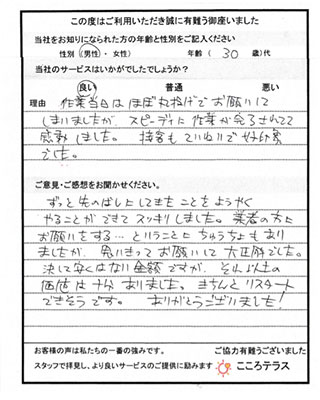 この度はご利用いただき誠に有難う御座いました
当社をお知りになられた方の年齢と性別をご記入ください
性別 (男性・女性) 年齢 (30歳)代
当社のサービスはいかがでしたでしょうか?
良い 普通 悪い
理由 作業当日はほぼ丸投げでお願いして
しまいましたが、スピーディに作業が完了されてて
感動しました。接客もていねいで好印象
でした。
ご意見・ご感想をお聞かせください。
ずっと先のばしにしてきたことをようやく
やることができてスッキリしました。業者の方に
お願いをする…ということにちゅうちょもあり
ましたが、思いきってお願いして大正解でした。
決して安くはない金額ですが、それ以上の
価値は十分ありました。きちんとリスタート
できそうです。ありがとうございました!
お客様の声は私たちの一番の強みです。 ご協力有難うございました
スタッフで拝見し、より良いサービスのご提供に励みます こころテラス